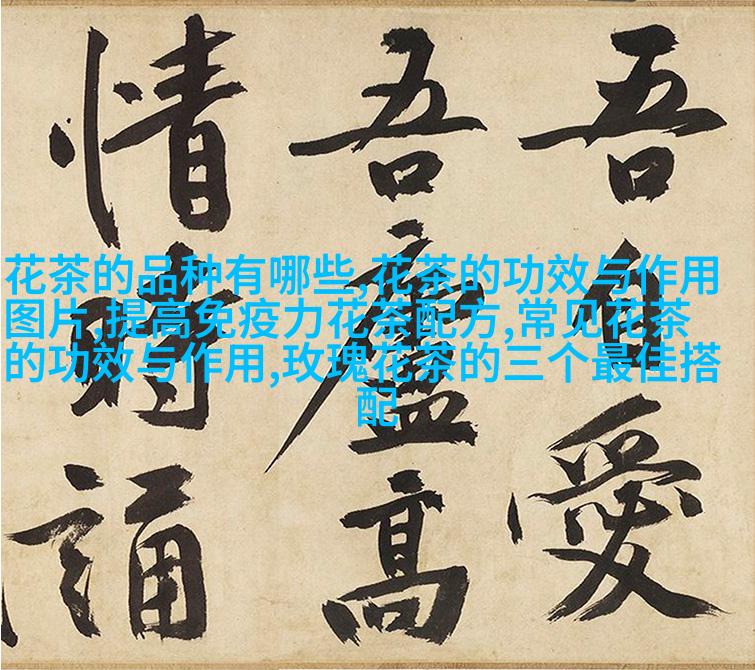 吾自愛
吾廬高
情時誦
花茶的品种有哪些,花茶的功效与作用
图片,提高免疫力花茶配方,常见花茶
的功效与作用,玫瑰花茶的三个最佳搭
配